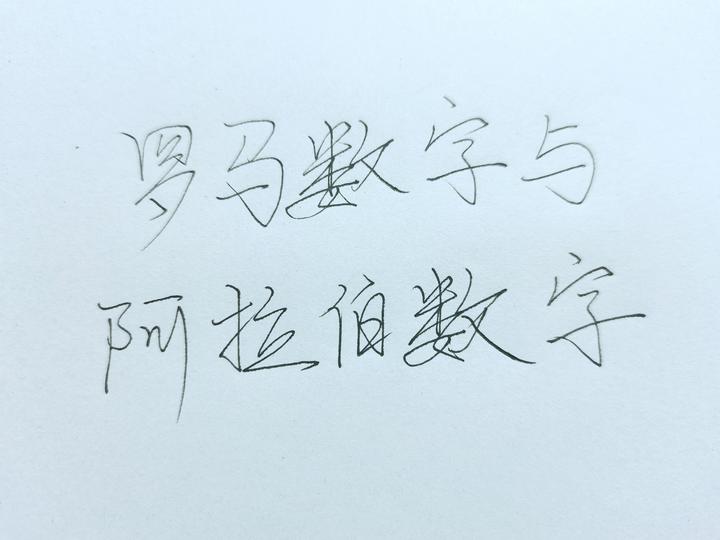 罗马数字与
阿拉伯数字